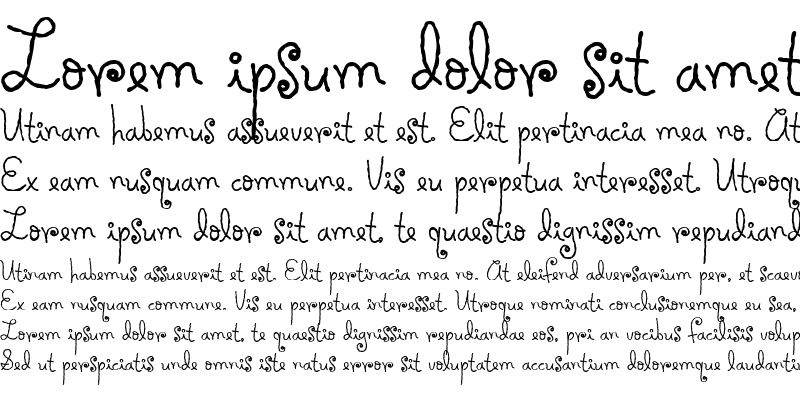 Lorem ipsum dolor sit amet
Utinam habemus assueverit et est. Elit pertinacia mea no. At
Ex eam nusquam commune. Vis eu perpetua interesset. Utroqu
Lorem ipsum dolor sit amet, te quaestio dignissim repudiand
Utinam habemus assueverit et est. Elit pertinacia mea no. At eleifend adversarium per, et scaev
Ex eam nusquam commune. Vis eu perpetua interesset. Utroque nominati conclusionemque eu sea,
Lorem ipsum dolor sit amet, te quaestio dignissim repudiandae eos, pri an vocibus facilisis volup
Sed ut perspiciatis unde omnis iste natus error sit voluptatem accusantium doloremque laudanti